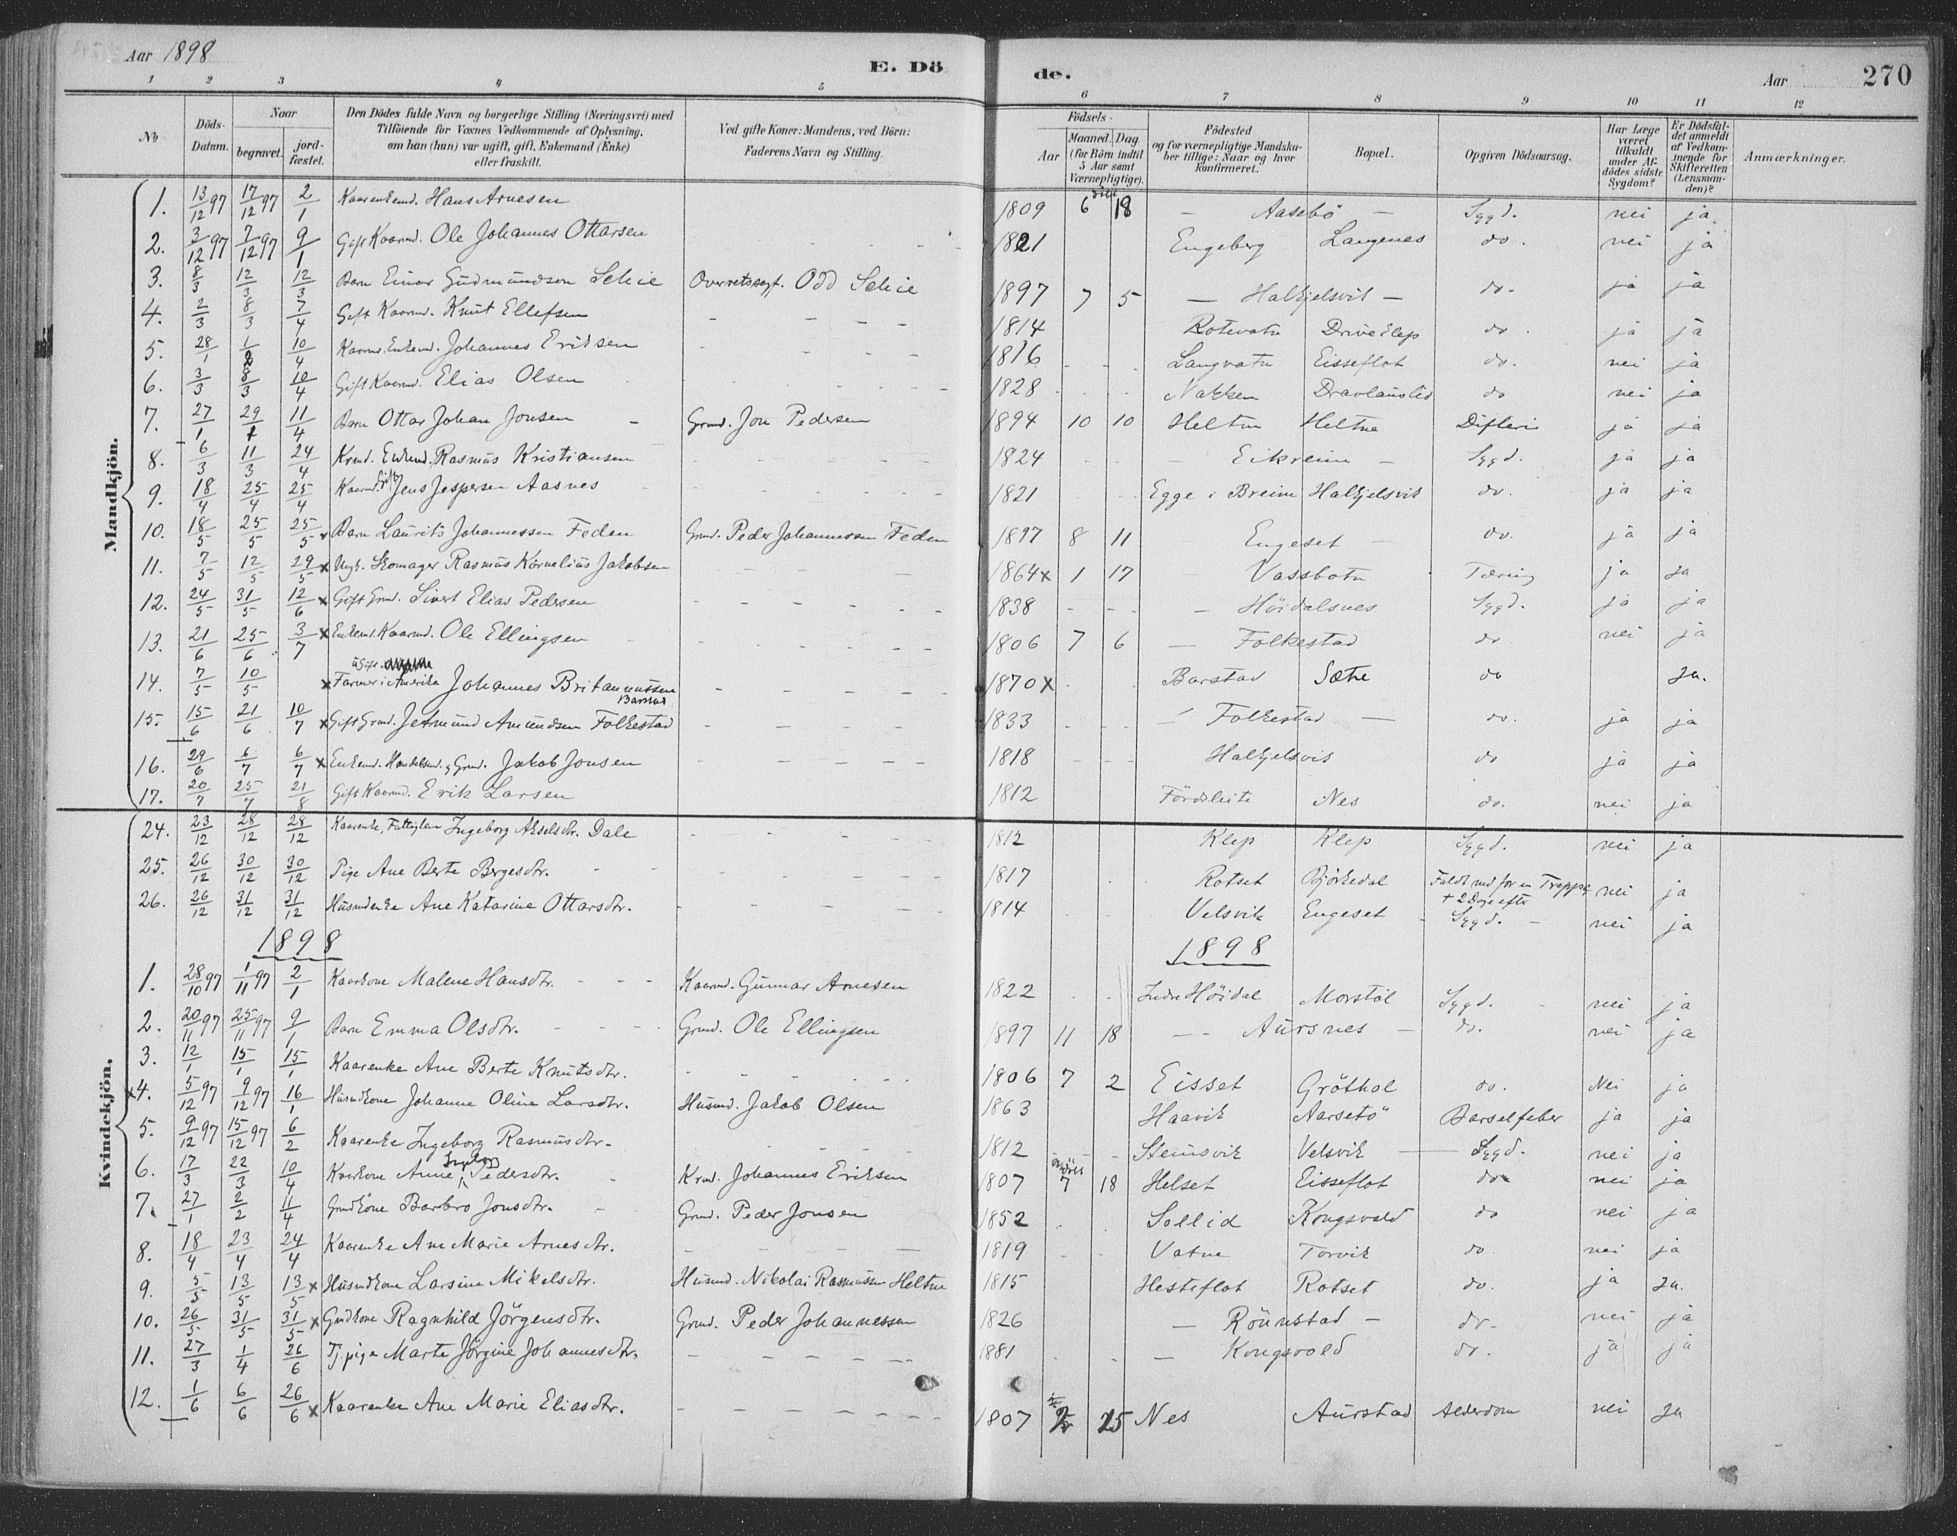 Aar 1898 E. Dö de. Aar 270
1 2 3 4 5 6 7 8 9 10 11 12
No. Döds-Datum. Naar begravet. jord-fæstet. Den Dödes fulde Navn og borgerlige Stilling (Næringsvei) med Tilföiende for Voxnes Vedkommende af Oplysning, om han (hun) var ugift, gift, Enkemand (Enke) eller fraskilt. Ved gifte Koner: Mandens, ved Börn: Faderens Navn og Stilling. Födsels- Aar Maaned. Dag. (for Börn indtil 5 Aar samt Værnepligtige). Födested og for værnepligtige Mandska-ber tillige: Naar og hvor konfirmeret. Bopæl. Opgiven Dödsaarsag. Har Læge været tilkaldt under Af-dödes sidste Sygdom? Er Dödsfal-det anmeldt af Vedkom-mende for Skifteretten (Lensman-den)? Anmærkninger.
Mandkjön.
1. 13/12 97 17/12 97 2/1 Kaarenkemd. Hans Arnesen 1809 6 18 — Aasebö — Sygd. nei ja.
2. 3/12 97 7/12 97 9/1 Gift Kaarmd. Ole Johannes Ottarsen 1821 Engeberg Langenes do. nei ja
3. 8/3 12/3 12/3 Barn Einar Gudmundson Schie Overretssagf. Odd Schie 1897 7 5 — Halkjelsvik — do. ja ja
4. 2/3 8/3 7/4 Gift Kaarmd. Knut Ellefsen 1814 Rotevatn Drive Elep do. ja ja
5. 28/1 1/2 10/4 Kaarmd. Enkemd. Johannes Eriksen 1816 Langvatn Eisseflot do. nei ja
6. 3/3 8/3 10/4 Gift Kaarmd. Elias Olsen 1828 Nakken Dravlauslid do nei ja
7. 27/1 29/1 11/4 Barn Ottar Johan Jonsen Grmd. Jon Pedersen 1894 10 10 Heltne Heltne Difteri ja ja
8. 6/3 11/3 24/4 Krmd. Enkemd. Rasmus Kristiansen 1824 — Eikreim — Sygd. ja ja
9. 18/4 25/4 25/4 Kaarmd. Gift Jens Jespersen Aasnes 1821 Egge i Breim Halkjelsvik do. ja ja
10. 18/5 25/5 25/5 x Barn Laurits Johannessen Feden Grmd. Peder Johannessen Feden 1897 8 11 Engeset — do. ja ja
11. 7/5 12/5 29/5 x Ugk. Skomager Rasmus Kornelius Jakobsen 1864 x 1 17 — Vassbotn Tæring ja ja
12. 24/5 31/5 12/6 x Gift Grmd. Sivert Elias Pedersen 1838 — Höidalsnes Sygd. ja ja
13. 21/6 25/6 3/7 x Enkemd. Kaarmd. Ole Ellingsen 1806 7 6 — Folkestad do nei ja
14. 7/5 10/5 x ugift Farmer i Amerika Johannes Britanussen Barstad 1870 x Barstad Sæthe do ja.
15. 15/6 21/6 10/7 x Gift Grmd. Jetmund Amundsen Folkestad 1833 — Folkestad — do. ja ja
16. 29/6 6/7 6/7 x Enkemd. Handelsmd. og Grmd. Jakob Jonsen 1818 Halkjelsvik do ja ja
17. 20/7 25/7 21/8 Gift Kaarmd. Erik Larsen 1812 Fördsleite Nes do. nei ja
Kvindekjön.
24. 23/12 28/12 28/12 Kaarenke, Fattiglem Ingeborg Akselsdtr. Dale 1812 Klep Klep Sygd. nei ja
25. 26/12 30/12 30/12 Pige Ane Berte Bergesdtr. 1817 Rotset Björkedal Faldt ned for en Trappe + 2 Dage efter nei ja
26. 26/12 31/12 31/12 Husmdenke Ane Katarine Ottarsdtr. 1814 Velsvik Engeset Sygd. — nei ja
1898 1898
1. 28/10 97 1/11 97 2/1 Kaarkone Malene Hansdtr. Kaarmd. Gunnar Arnesen 1822 Indre Höidal Morstöl Sygd. nei ja
2. 20/11 97 25/11 97 9/1 Barn Emma Olsdtr. Grmd. Ole Ellingsen 1897 11 18 — Aursnes — do. nei ja
3. 12/1 15/1 15/1 Kaarenke Ane Berte Knutsdtr. 1806 7 2 Eisset Gröthol do. Nei ja
x4. 5/12 97 9/12 97 16/1 Husmdkone Johanne Oline Larsdtr. Husmd. Jakob Olsen 1863 Haavik Aarsetö Barselfeber ja ja
5. 9/12 97 15/12 97 6/2 Kaarenke Ingeborg Rasmusdtr. 1812 Steinsvik Velsvik — Sygd. nei ja
6. 17/3 22/3 10/4 Kaarkone Anne Ingeborg Pedersdtr. Krmd. Johannes Eriksen 1807 7 18 Helset Eisseflot do. nei ja
7. 27/1 2/2 11/4 Grmdkone Barbro Jonsdtr. Grmd. Peder Jonsen 1852 Sollid Kongsvold do nei ja
8. 18/4 23/4 24/4 Kaarenke Ane Marie Arnesdtr. 1819 Vatne Torvik do. nei ja
9. 5/5 13/5 13/5 x Husmdkone Larsine Mikelsdtr. Husmd. Nikolai Rasmussen Heltne 1815 Hesteflot Rotset do. ja ja.
10. 26/5 31/5 31/5 x Grmdkone Ragnhild Jörgensdtr. Grmd. Peder Johannessen 1826 — Rönnstad — do. nei ja
11. 27/3 1/4 26/6 Tj.pige Marte Jörgine Johannesdtr. 1881 — Kongsvold do. ja ja
12. 1/6 6/6 26/6 x Kaarenke Ane Marie Eliasdtr. 1807 25 Nes Aurstad Alderdom nei ja